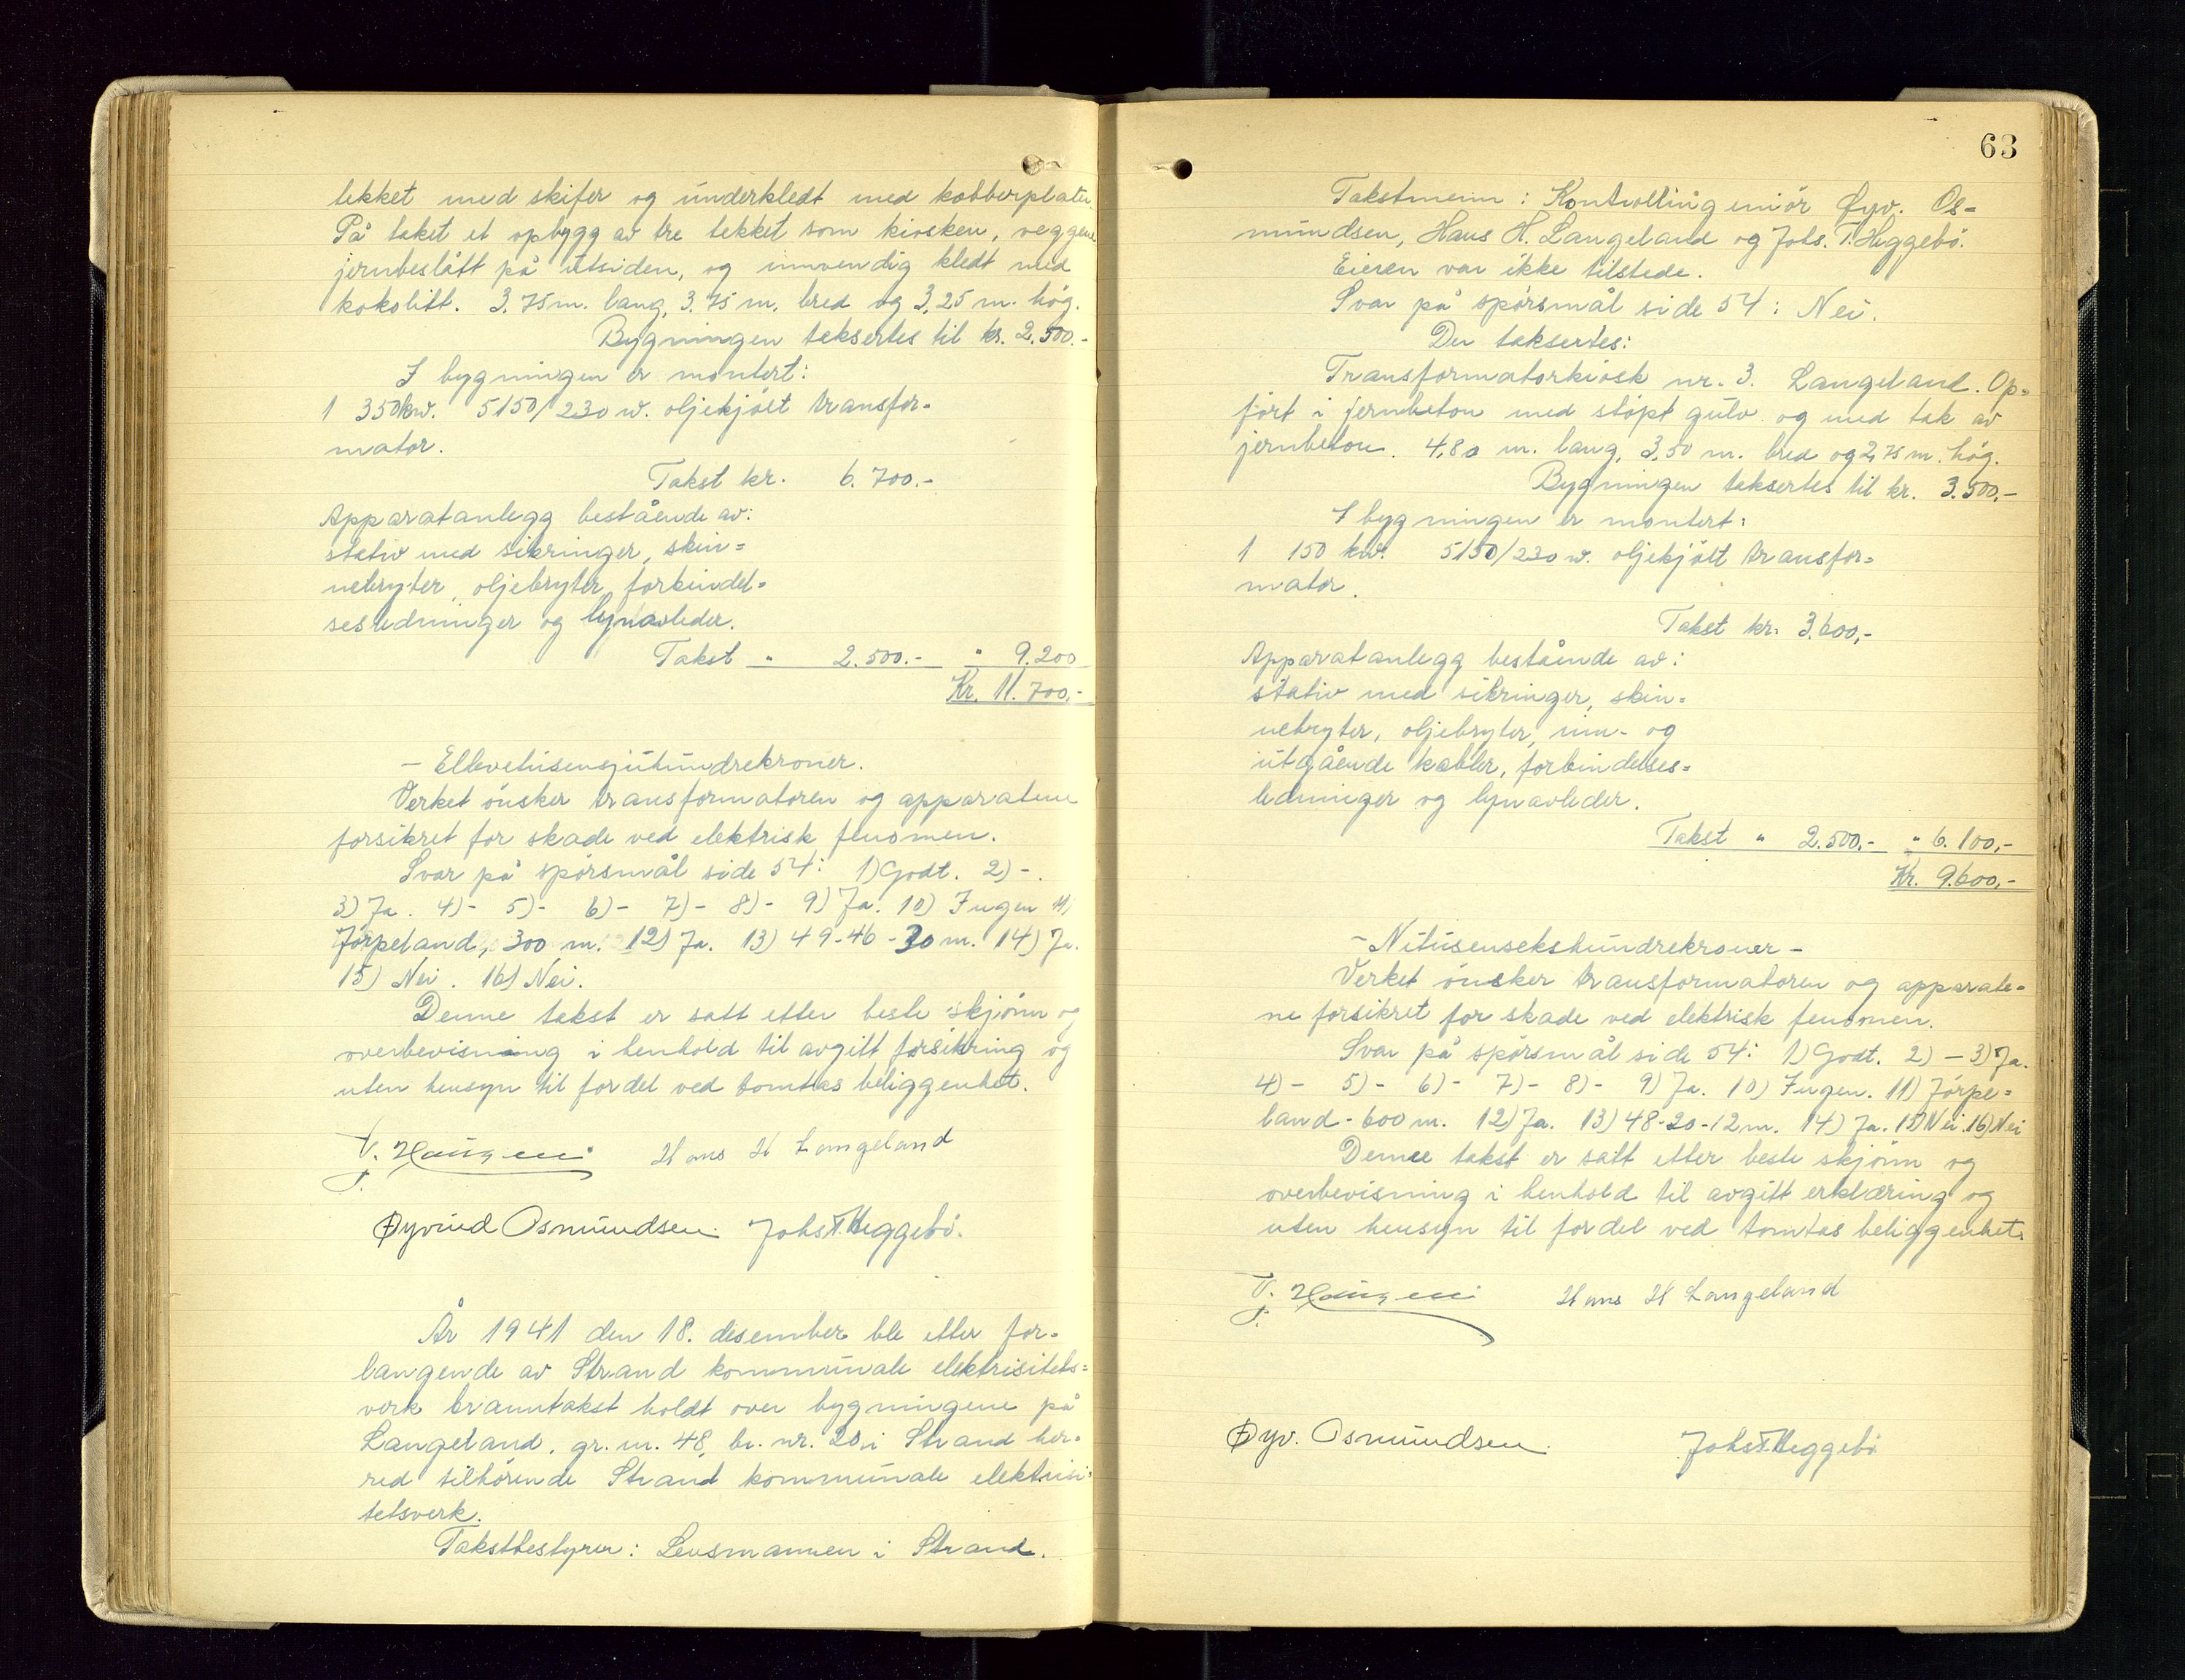 tekket med skifer og underkledt med kobberplater.
På taket et opbygg av tre tekket som kiosken, veggene
jernbeslått på utsiden, og innvendig kledt med
kokolitt. 3.75 m. lang, 3.75 m. bred og 3,25 m. hög.
Bygningen taksertes til kr. 2.500.-
I bygningen er montert:
1 350 kw. 5150/230 w. oljekjölt transfor=
mator.
Takst kr. 6.700.-
Apparatanlegg bestående av:
stativ med sikringer, skin=
nebryter, oljebryter, forbindel=
sesledninger og lynavleder.
Takst " 2.500.- " 9.200
Kr. 11.700,-
- Ellevetusensjuhundrekroner.
Verket önsker transformatoren og apparatene
forsikret for skade ved elektrisk fenomen.
Svar på spörsmål side 54: 1) Godt. 2) -.
3) Ja. 4) - 5) - 6) - 7) - 8) - 9) Ja. 10) Ingen 11)
Jörpeland, 300 m. 12) Ja. 13) 49-46-30 m. 14) Ja.
15) Nei. 16) Nei.
Denne takst er satt etter beste skjönn og
overbevisning i henhold til avgitt forsikring og
uten hensyn til fordel ved tomtas beliggenhet.
T. Haugen Hans H Langeland
Øyvind Osmundsen. Johs T. Heggebö.
År 1941 den 18. desember ble etter for=
langende av Strand kommunale elektrisitets=
verk branntakst holdt over bygningene på
Langeland, gr. nr. 48, br. nr. 20, i Strand her=
red tilhörende Strand kommunale elektrisi=
tetsverk.
Takstbestyrer: Lensmannen i Strand.
63
Takstmenn: Kontrollingeniör Øyv. Os=
mundsen, Hans H. Langeland og Johs. T. Heggebö.
Eieren var ikke tilstede.
Svar på spörsmål side 54: Nei.
Der taksertes:
Transformatorkiosk nr. 3. Langeland. Op=
fört i jernbeton med stöpt gulv og med tak av
jernbeton. 4,80 m. lang, 3,50 m. bred og 2,75 m. hög.
Bygningen taksertes til kr. 3.500,-
I bygningen er montert:
1 150 kw. 5150/230 w. oljekjölt transfor=
mator.
Takst kr. 3.600,-
Apparatanlegg bestående av:
stativ med sikringer, skin=
nebryter, oljebryter, inn- og
utgående kabler, forbindelses=
ledninger og lynavleder.
Takst " 2.500.- " 6.100,-
Kr. 9.600,-
- Nitusensekshundrekroner -
Verket önsker transformatoren og apparate=
ne forsikret for skade ved elektrisk fenomen.
Svar på spörsmål side 54: 1) Godt. 2) - 3) Ja.
4) - 5) - 6) - 7) - 8) - 9) Ja. 10) Ingen. 11) Jörpe=
land - 600 m. 12) Ja. 13) 48-20-12 m. 14) Ja. 15) Nei. 16) Nei
Denne takst er satt etter beste skjönn og
overbevisning i henhold til avgitt erklæring og
uten hensyn til fordel ved tomtas beliggenhet.
T. Haugen Hans H Langeland
Øyv. Osmundsen. Johs T. Heggebö